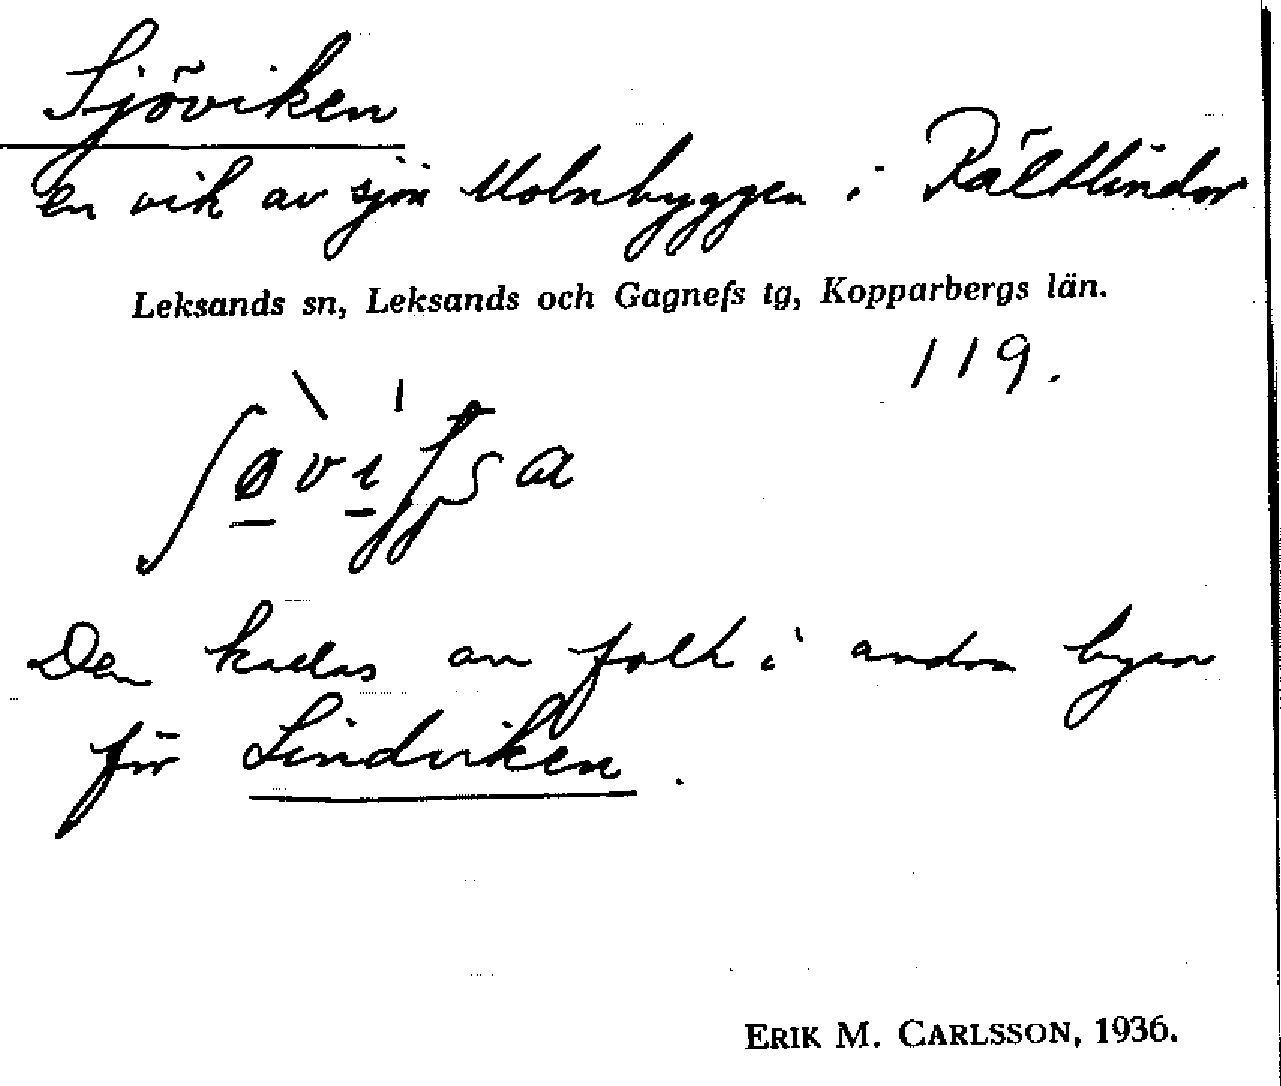 Sjöviken
En vik av sjön Molnbyggen i Rältlindor
Leksands sn, Leksands och Gagnefs tg, Kopparbergs län.
119.
Den kallas av folk i andra byar
för Lindviken.
ERIK M. CARLSSON, 1936.